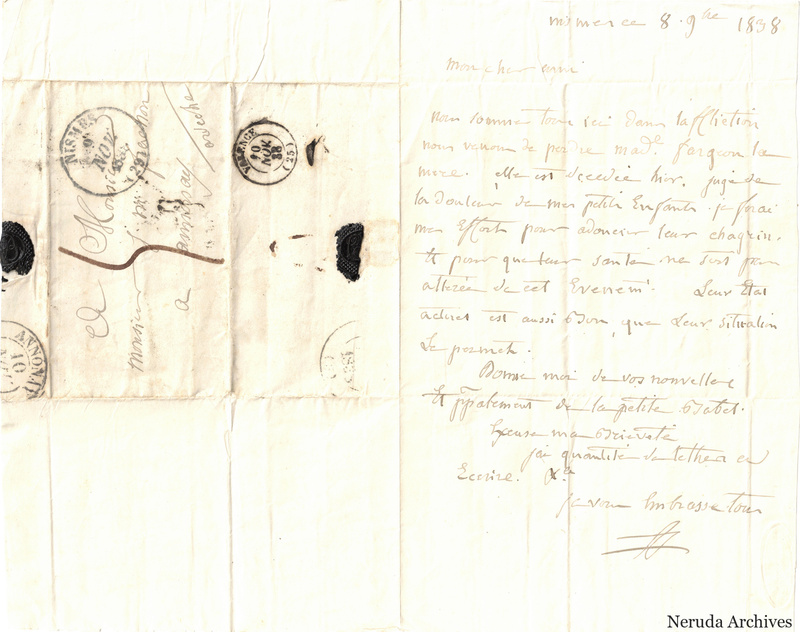 nismes ce 8. 9bre 1838
mon cher ami
nous sommes tous ici dans laffliction
nous venons de perdre made. fargeon la
mere. elle est decedée hier. jugé de
la douleur de mes petits Enfants. je ferai
mes Efforts pour adoucir leur chagrin.
Et pour que leur santé ne soit pas
alterée de cet Evenemt. Leur Etat
actuel est aussi Bon que Leur situation
Le permet.
Donne moi de vos nouvelles
Et ppalement de la petite Babet.
Excuse ma Brieveté
jai quantité de lettres a
Ecrire.
je vous Embrasse tous
NISMES
NOV
VALENCE
10
NOV.
38
(25)
A Monsieur
Monsieur
a annonay
ardeche
ANNONAY
10
Neruda Archives